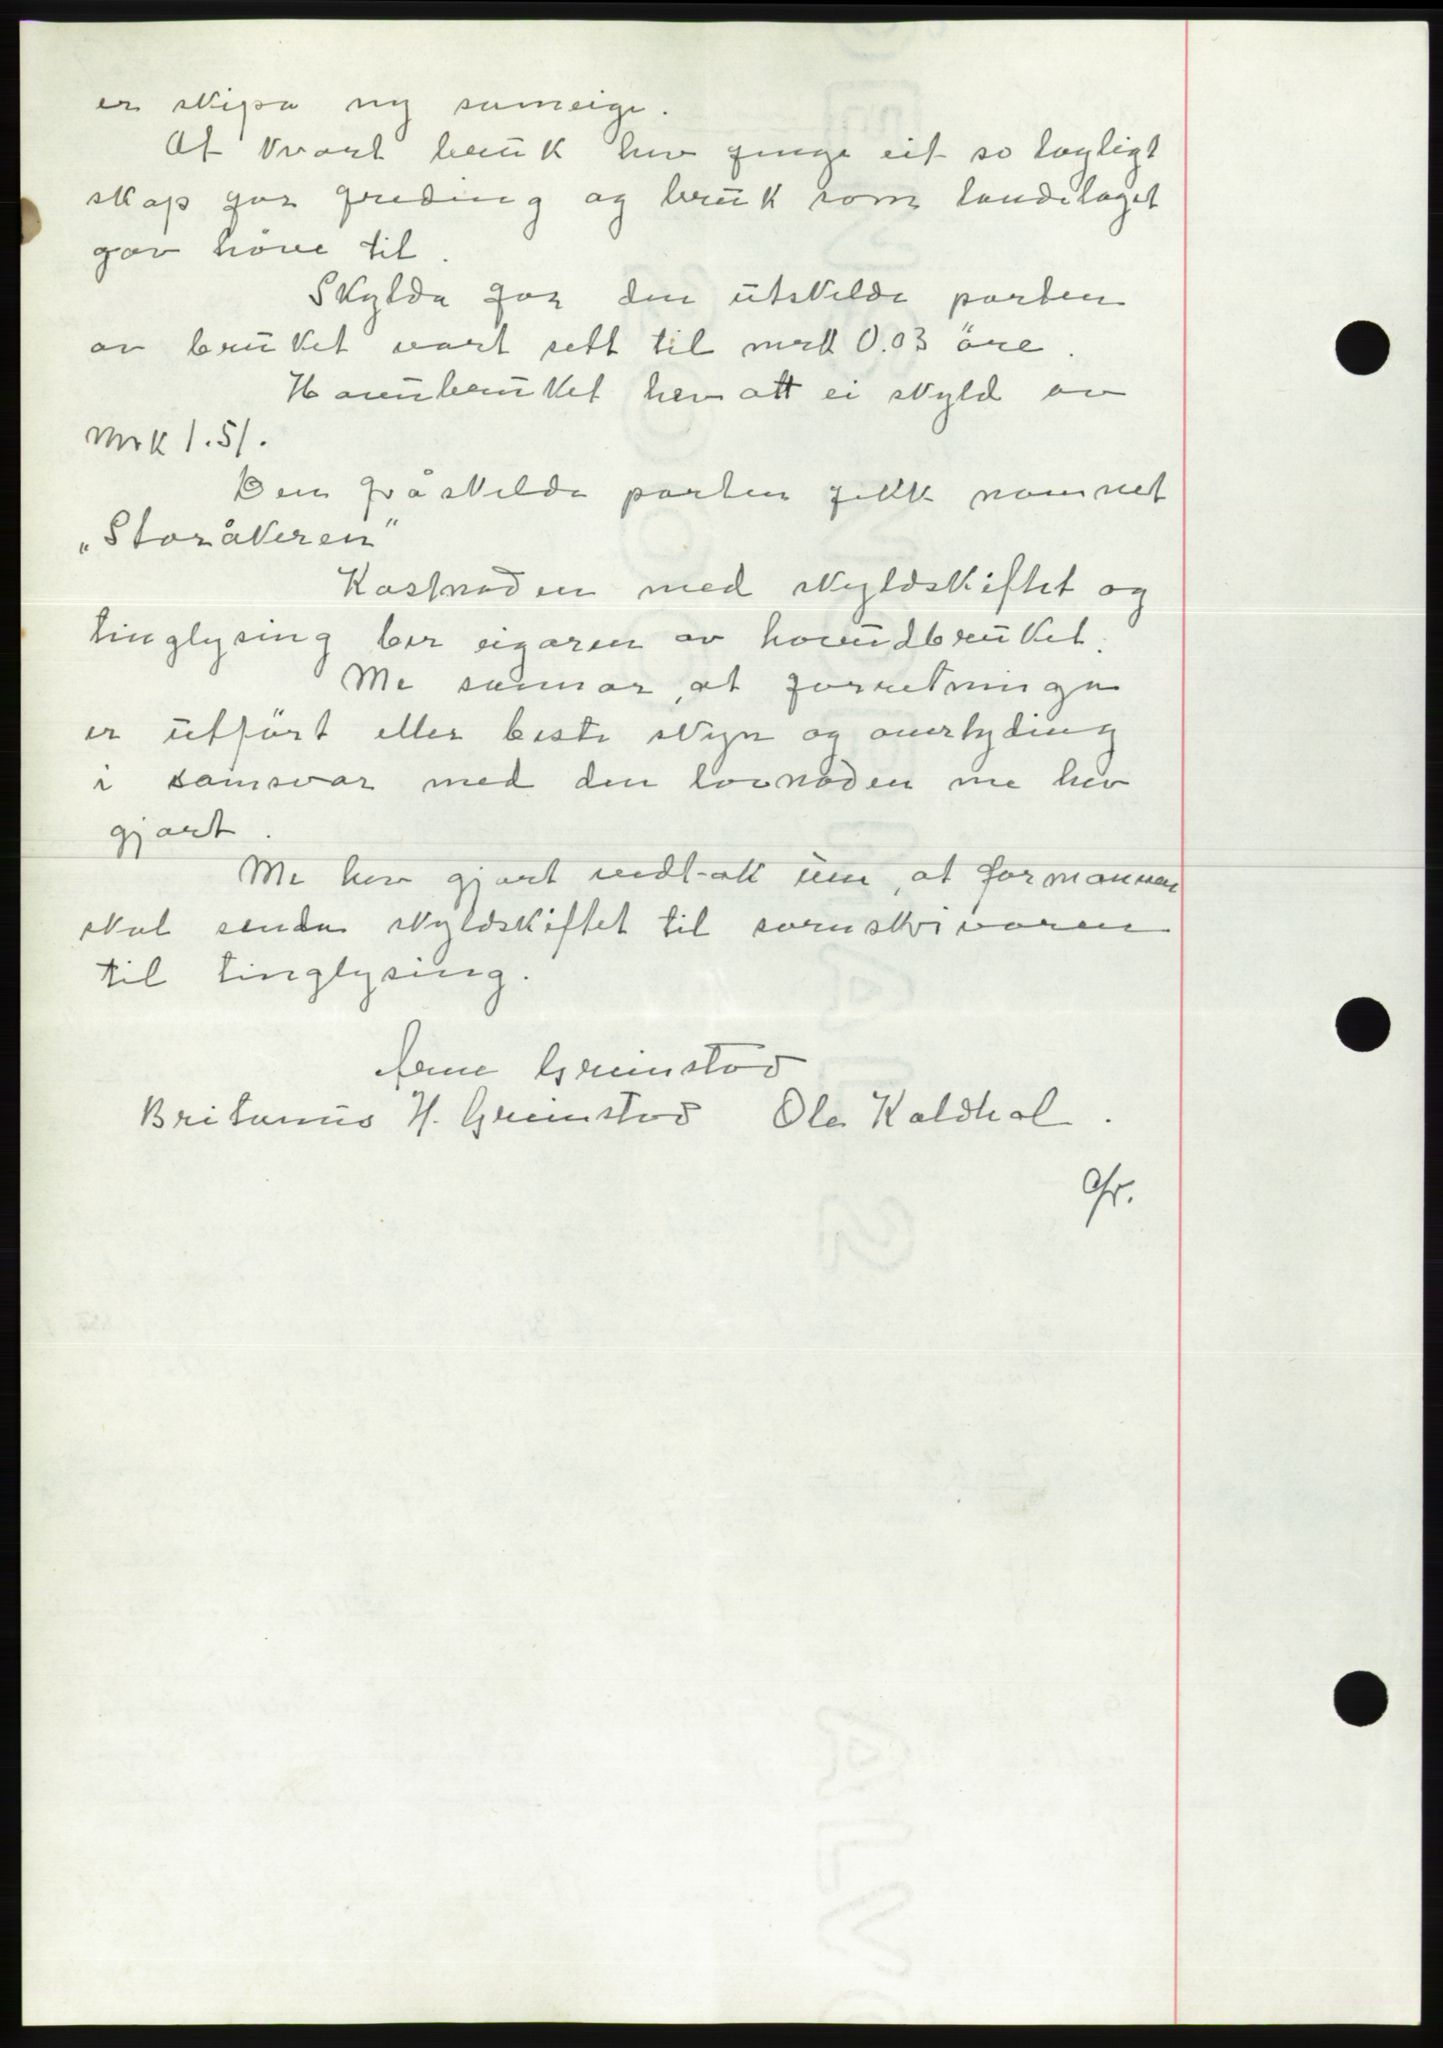 er skipa ny sameige.
At kvart bruk hev fenge eit so lagligt
skap for freding og bruk som landelaget
gav høve til.
Skylda for den utskilde parten
av bruket vart sett til mrk 0.03 öre.
Hovudbruket hev att ei skyld av
mrk 1.51.
Den fråskilde parten fekk namnet
„Storåkeren"
Kostnaden med skyldskiftet og
tinglysing ber eigaren av hovudbruket.
Me sannar, at forretninga
er utfört etter beste skyn og overtyding
i samsvar med den lovnaden me hev
gjort.
Me hev gjort vedt-ak um, at formannen
skal senda skyldskiftet til sorenskrivaren
til tinglysing.
Arne Grimstad
Britanus H. Grimstad Ola Kaldhol.